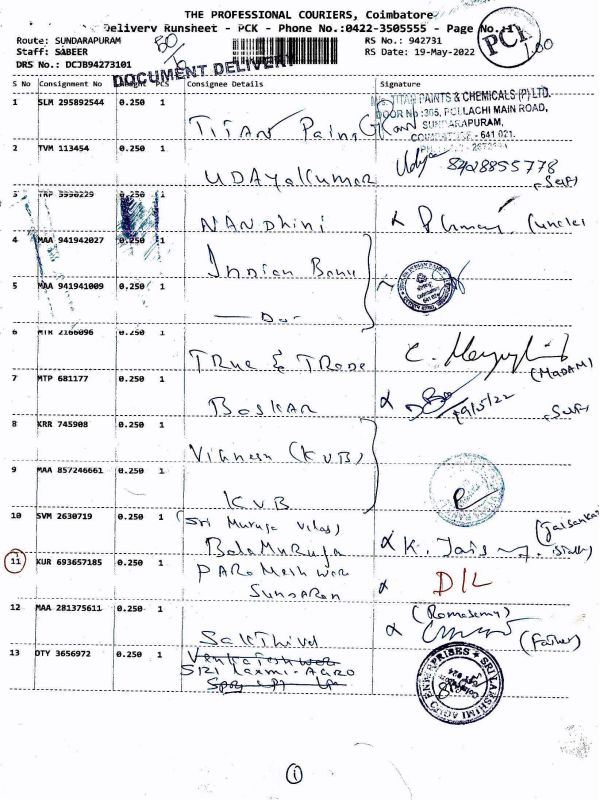 THE PROFESSIONAL COURIERS, Coimbatore
Delivery Runsheet - PCK - Phone No.:0422-3505555 - Page No.:1
Route: SUNDARAPURAM
RS No.: 942731
Staff: SABEER
RS Date: 19-May-2022
DRS No.: DCJB94273101
PCK
DOCUMENT DELIVERY
S No Consignment No PCS Consignee Details Signature
1 SLM 295892544 0.250 1
TITAN PAINTS & CHEMICALS (P) LTD.
DOOR No :305, POLLACHI MAIN ROAD,
SUNDARAPURAM,
COIMBATORE - 641 021.
TITAN Paints
2 TVM 113454 0.250 1
UDAYaKumar
8428855778
3 TRP 3990229 0.250 1
NANDhini
(uncle)
4 MAA 941942027 0.250 1
Indian Bank
5 MAA 941941009 0.250 1
Do
6 MTR 2166096 0.250 1
TRUE & TRADE
(MADAM)
7 MTP 681177 0.250 1
BASKAR
19/5/22
8 KRR 745908 0.250 1
Vighnesh (KVB)
9 MAA 857246661 0.250 1
KVB
10 SVM 2630719 0.250 1
(Sri Muruga Vilas)
BalaMuruga
11 KUR 693657185 0.250 1
PARAMeshwar
Sundaram
D/L
12 MAA 281375611 0.250 1
Sakthivel
(Ramasamy)
(Father)
13 OTY 3656972 0.250 1
Venkateshwar
SRI Laxmi-AGRO
SRI LAKSHMI AGRO ENTERPRISES
1